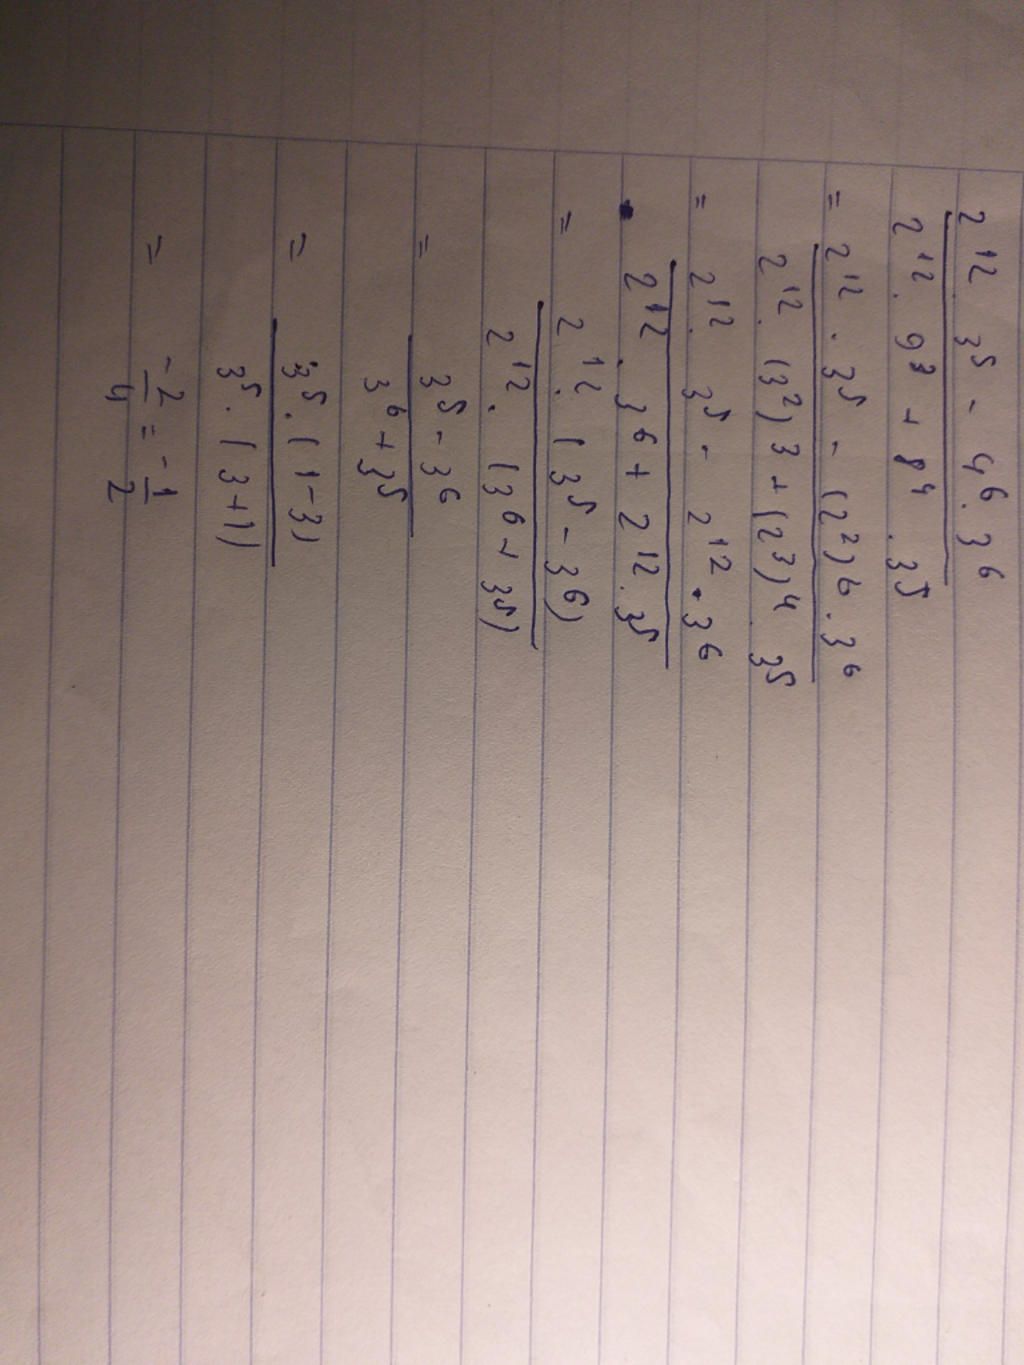 2¹² . 3⁵ - 4⁶ . 3⁶
2¹² . 9³ + 8⁴ . 3⁵
= 2¹² . 3⁵ - (2²)6 . 3⁶
2¹² . (3²)3 + (2³)4 . 3⁵
= 2¹² . 3⁵ - 2¹² . 3⁶
2¹² . 3⁶ + 2¹² . 3⁵
= 2¹² . (3⁵ - 3⁶)
2¹² . (3⁶ + 3⁵)
= 3⁵ - 3⁶
3⁶ + 3⁵
= 3⁵ . (1 - 3)
3⁵ . (3 + 1)
= -2/4 = -1/2